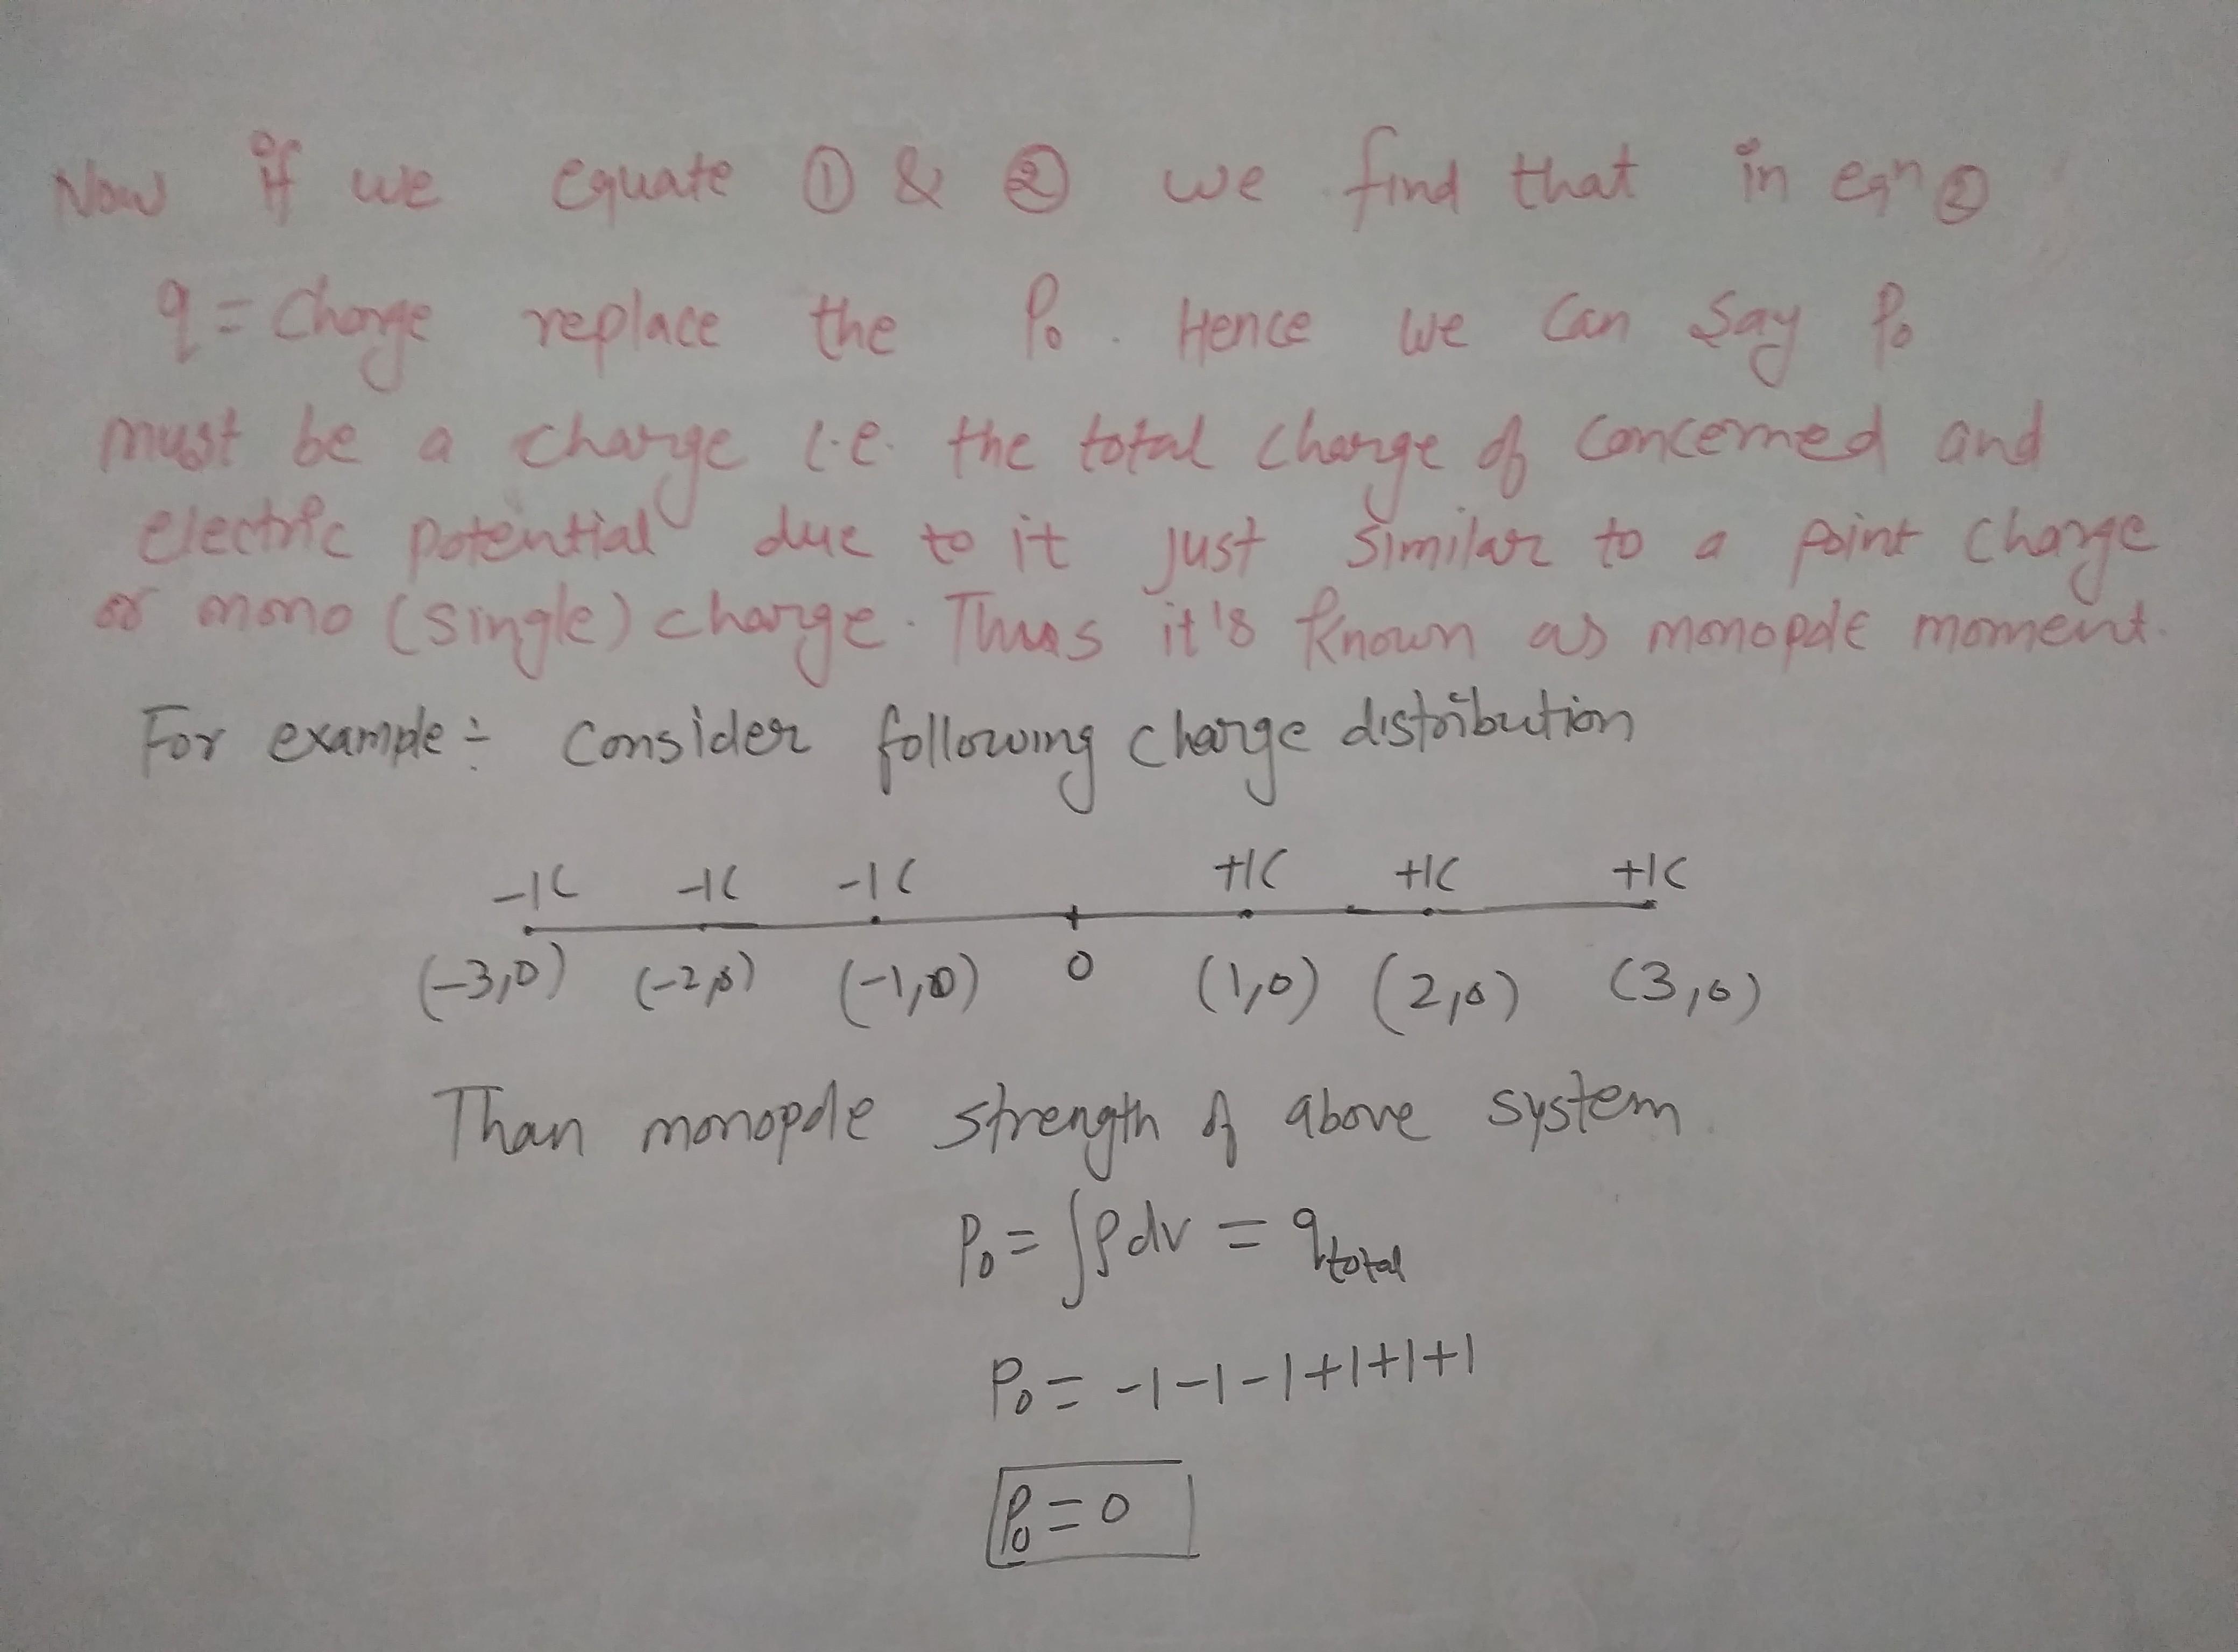 Now if we equate ① & ② we find that in eqn ②
q = Charge replace the P₀. Hence we can say P₀
must be a charge i.e. the total charge of concerned and
electric potential due to it just similar to a point charge
or mono (single) charge. Thus it's known as monopole moment.
For example ÷ Consider following charge distribution
-1C -1C -1C +1C +1C +1C
(-3,0) (-2,0) (-1,0) 0 (1,0) (2,0) (3,0)
Than monopole strength of above system.
P₀ = ∫ρdv = q_total
P₀ = -1-1-1+1+1+1
P₀ = 0